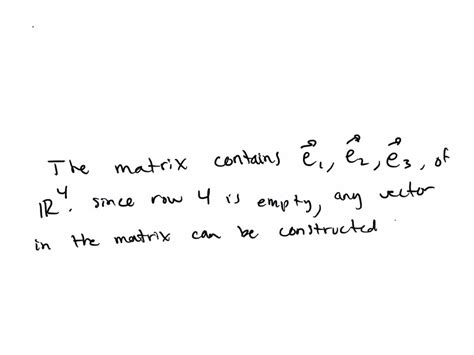 The matrix contains e⃗₁, e⃗₂, e⃗₃, of
ℝ⁴. since row 4 is empty, any vector
in the matrix can be constructed